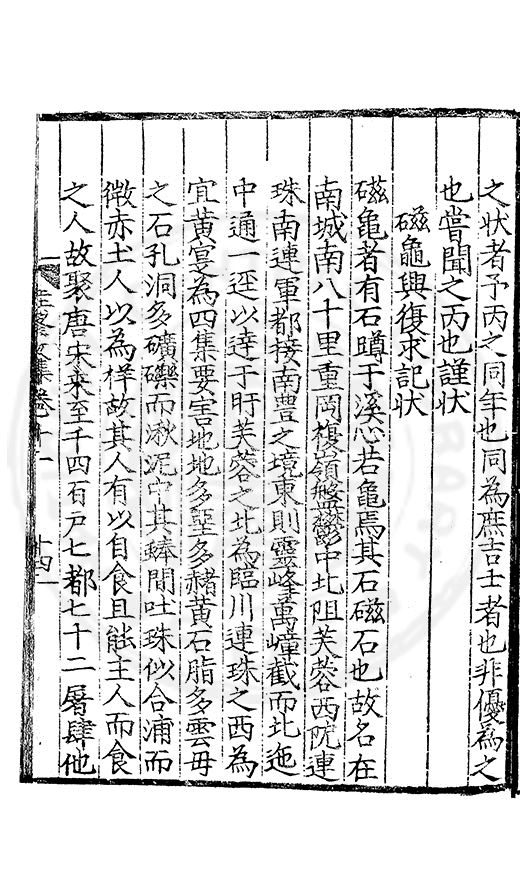 之状者予丙之同年也同為庶吉士者也非優為之
也嘗聞之丙也謹状
磁龜興復求記状
磁龜者有石蹲于溪心若龜焉其石磁石也故名在
南城南八十里重岡複嶺盤欝中北阻芙蓉西阮連
珠南連軍都接南豊之境東則靈峰萬嶂截而北迤
中通一逕以達于盱芙蓉之北為臨川連珠之西為
宜黄宴為四集要害地地多堊多赭黄石脂多雲母
之石孔洞多礦礫而湫泥中其蜯間吐珠似合浦而
微赤土人以為样故其人有以自食且能主人而食
之人故聚唐宋来至千四百戸七都七十二屠肆他
文集卷十一
十四